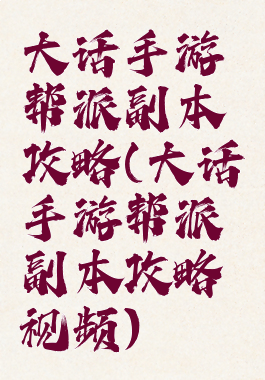 大话手游
帮派副本
攻略(大话
手游帮派
副本攻略
视频)